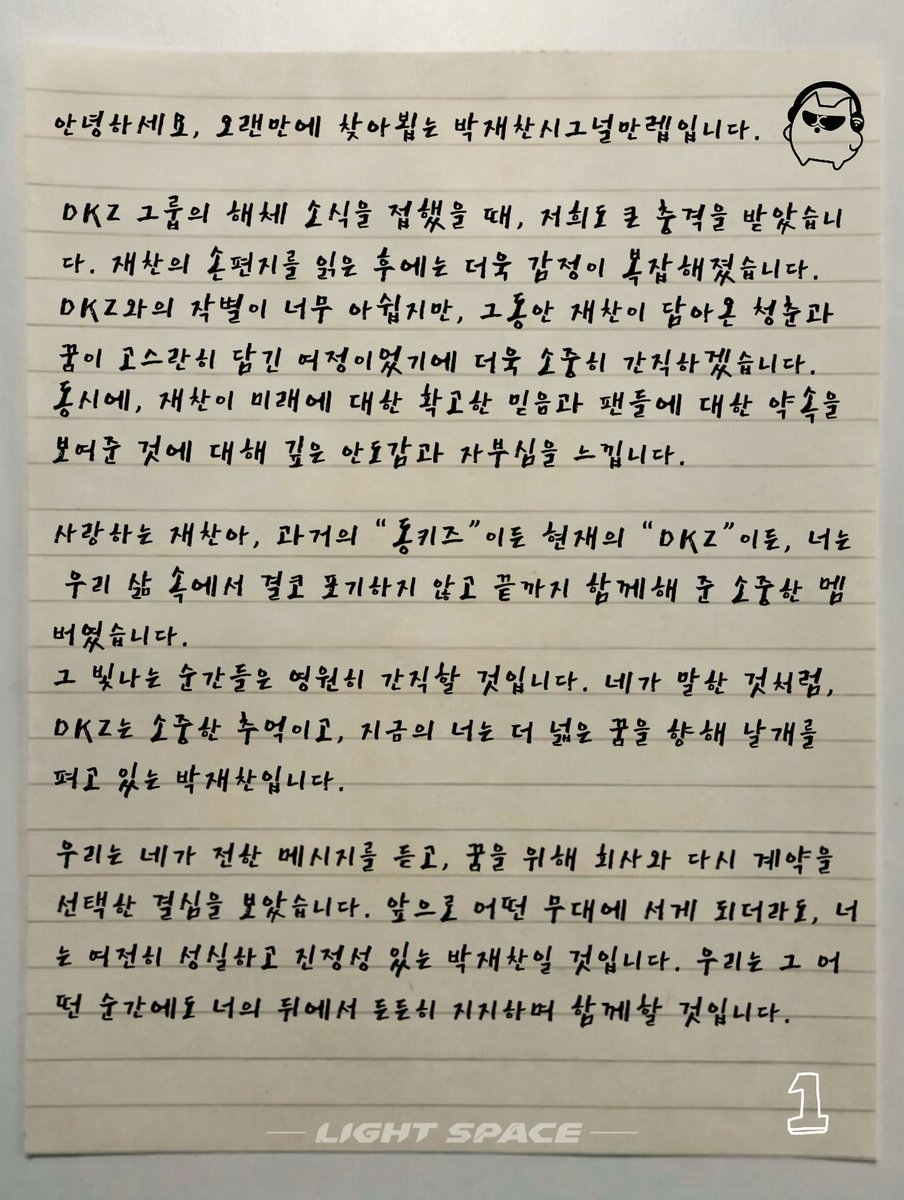 안녕하세요, 오랜만에 찾아뵙는 박재찬시그널만렙입니다.
DKZ 그룹의 해체 소식을 접했을 때, 저희도 큰 충격을 받았습니
다. 재찬의 손편지를 읽은 후에는 더욱 감정이 복잡해졌습니다.
DKZ와의 작별이 너무 아쉽지만, 그동안 재찬이 담아온 청춘과
꿈이 고스란히 담긴 여정이었기에 더욱 소중히 간직하겠습니다.
동시에, 재찬이 미래에 대한 확고한 믿음과 팬들에 대한 약속을
보여준 것에 대해 깊은 안도감과 자부심을 느낍니다.
사랑하는 재찬아, 과거의 “동키즈”이든 현재의 “DKZ”이든, 너는
우리 삶 속에서 결코 포기하지 않고 끝까지 함께해 준 소중한 멤
버였습니다.
그 빛나는 순간들은 영원히 간직할 것입니다. 네가 말한 것처럼,
DKZ는 소중한 추억이고, 지금의 너는 더 넓은 꿈을 향해 날개를
펴고 있는 박재찬입니다.
우리는 네가 전한 메시지를 듣고, 꿈을 위해 회사와 다시 계약을
선택한 결심을 보았습니다. 앞으로 어떤 무대에 서게 되더라도, 너
는 여전히 성실하고 진정성 있는 박재찬일 것입니다. 우리는 그 어
떤 순간에도 너의 뒤에서 든든히 지지하며 함께할 것입니다.
1
LIGHT SPACE